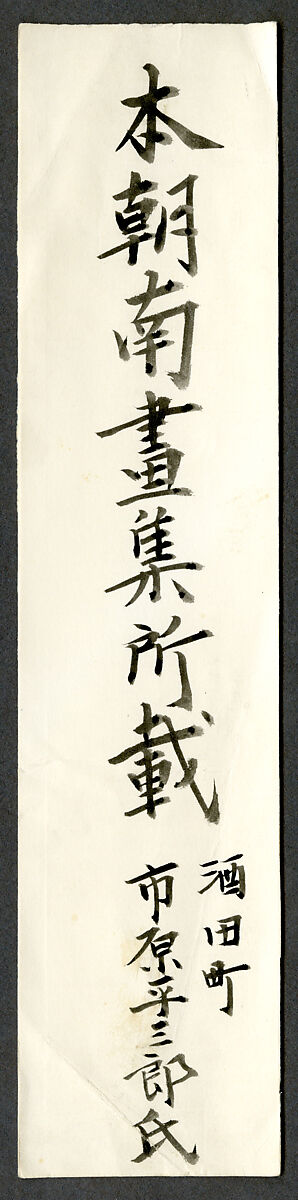 本朝南畫集所載
酒田町
市原平三郎氏